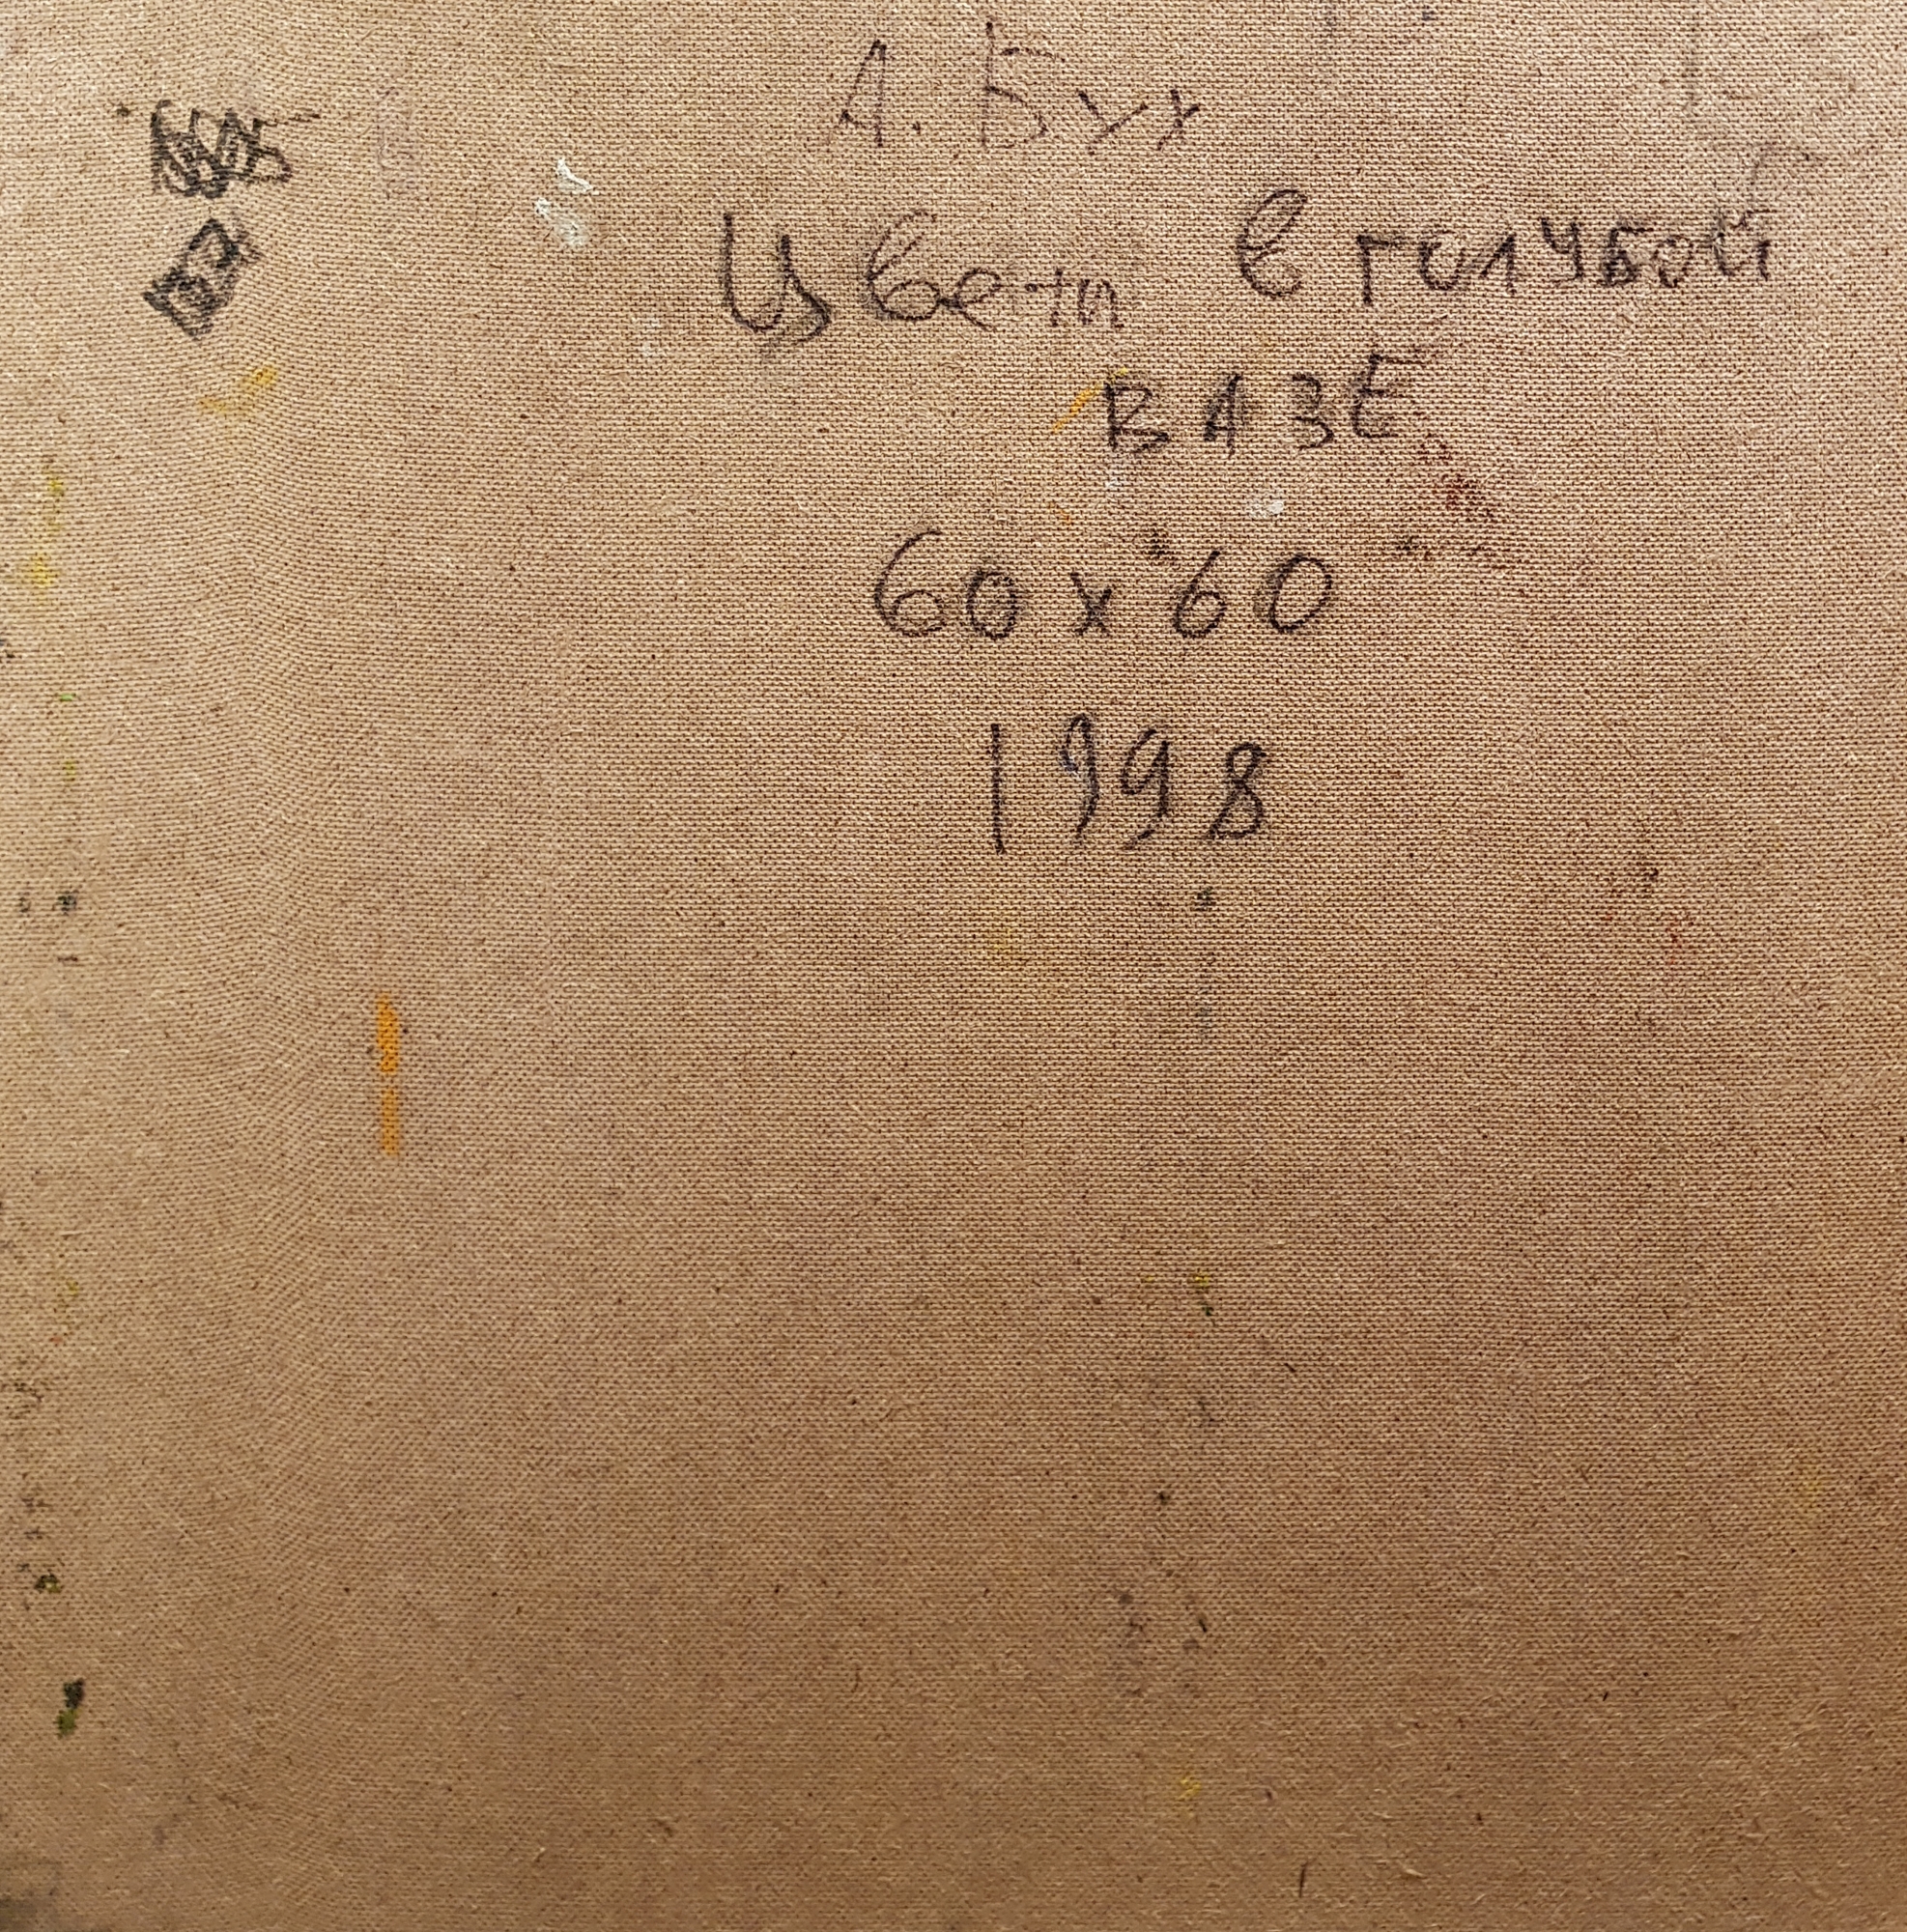 А. Бух
Цветы в голубой
ВАЗЕ
60 x 60
1998